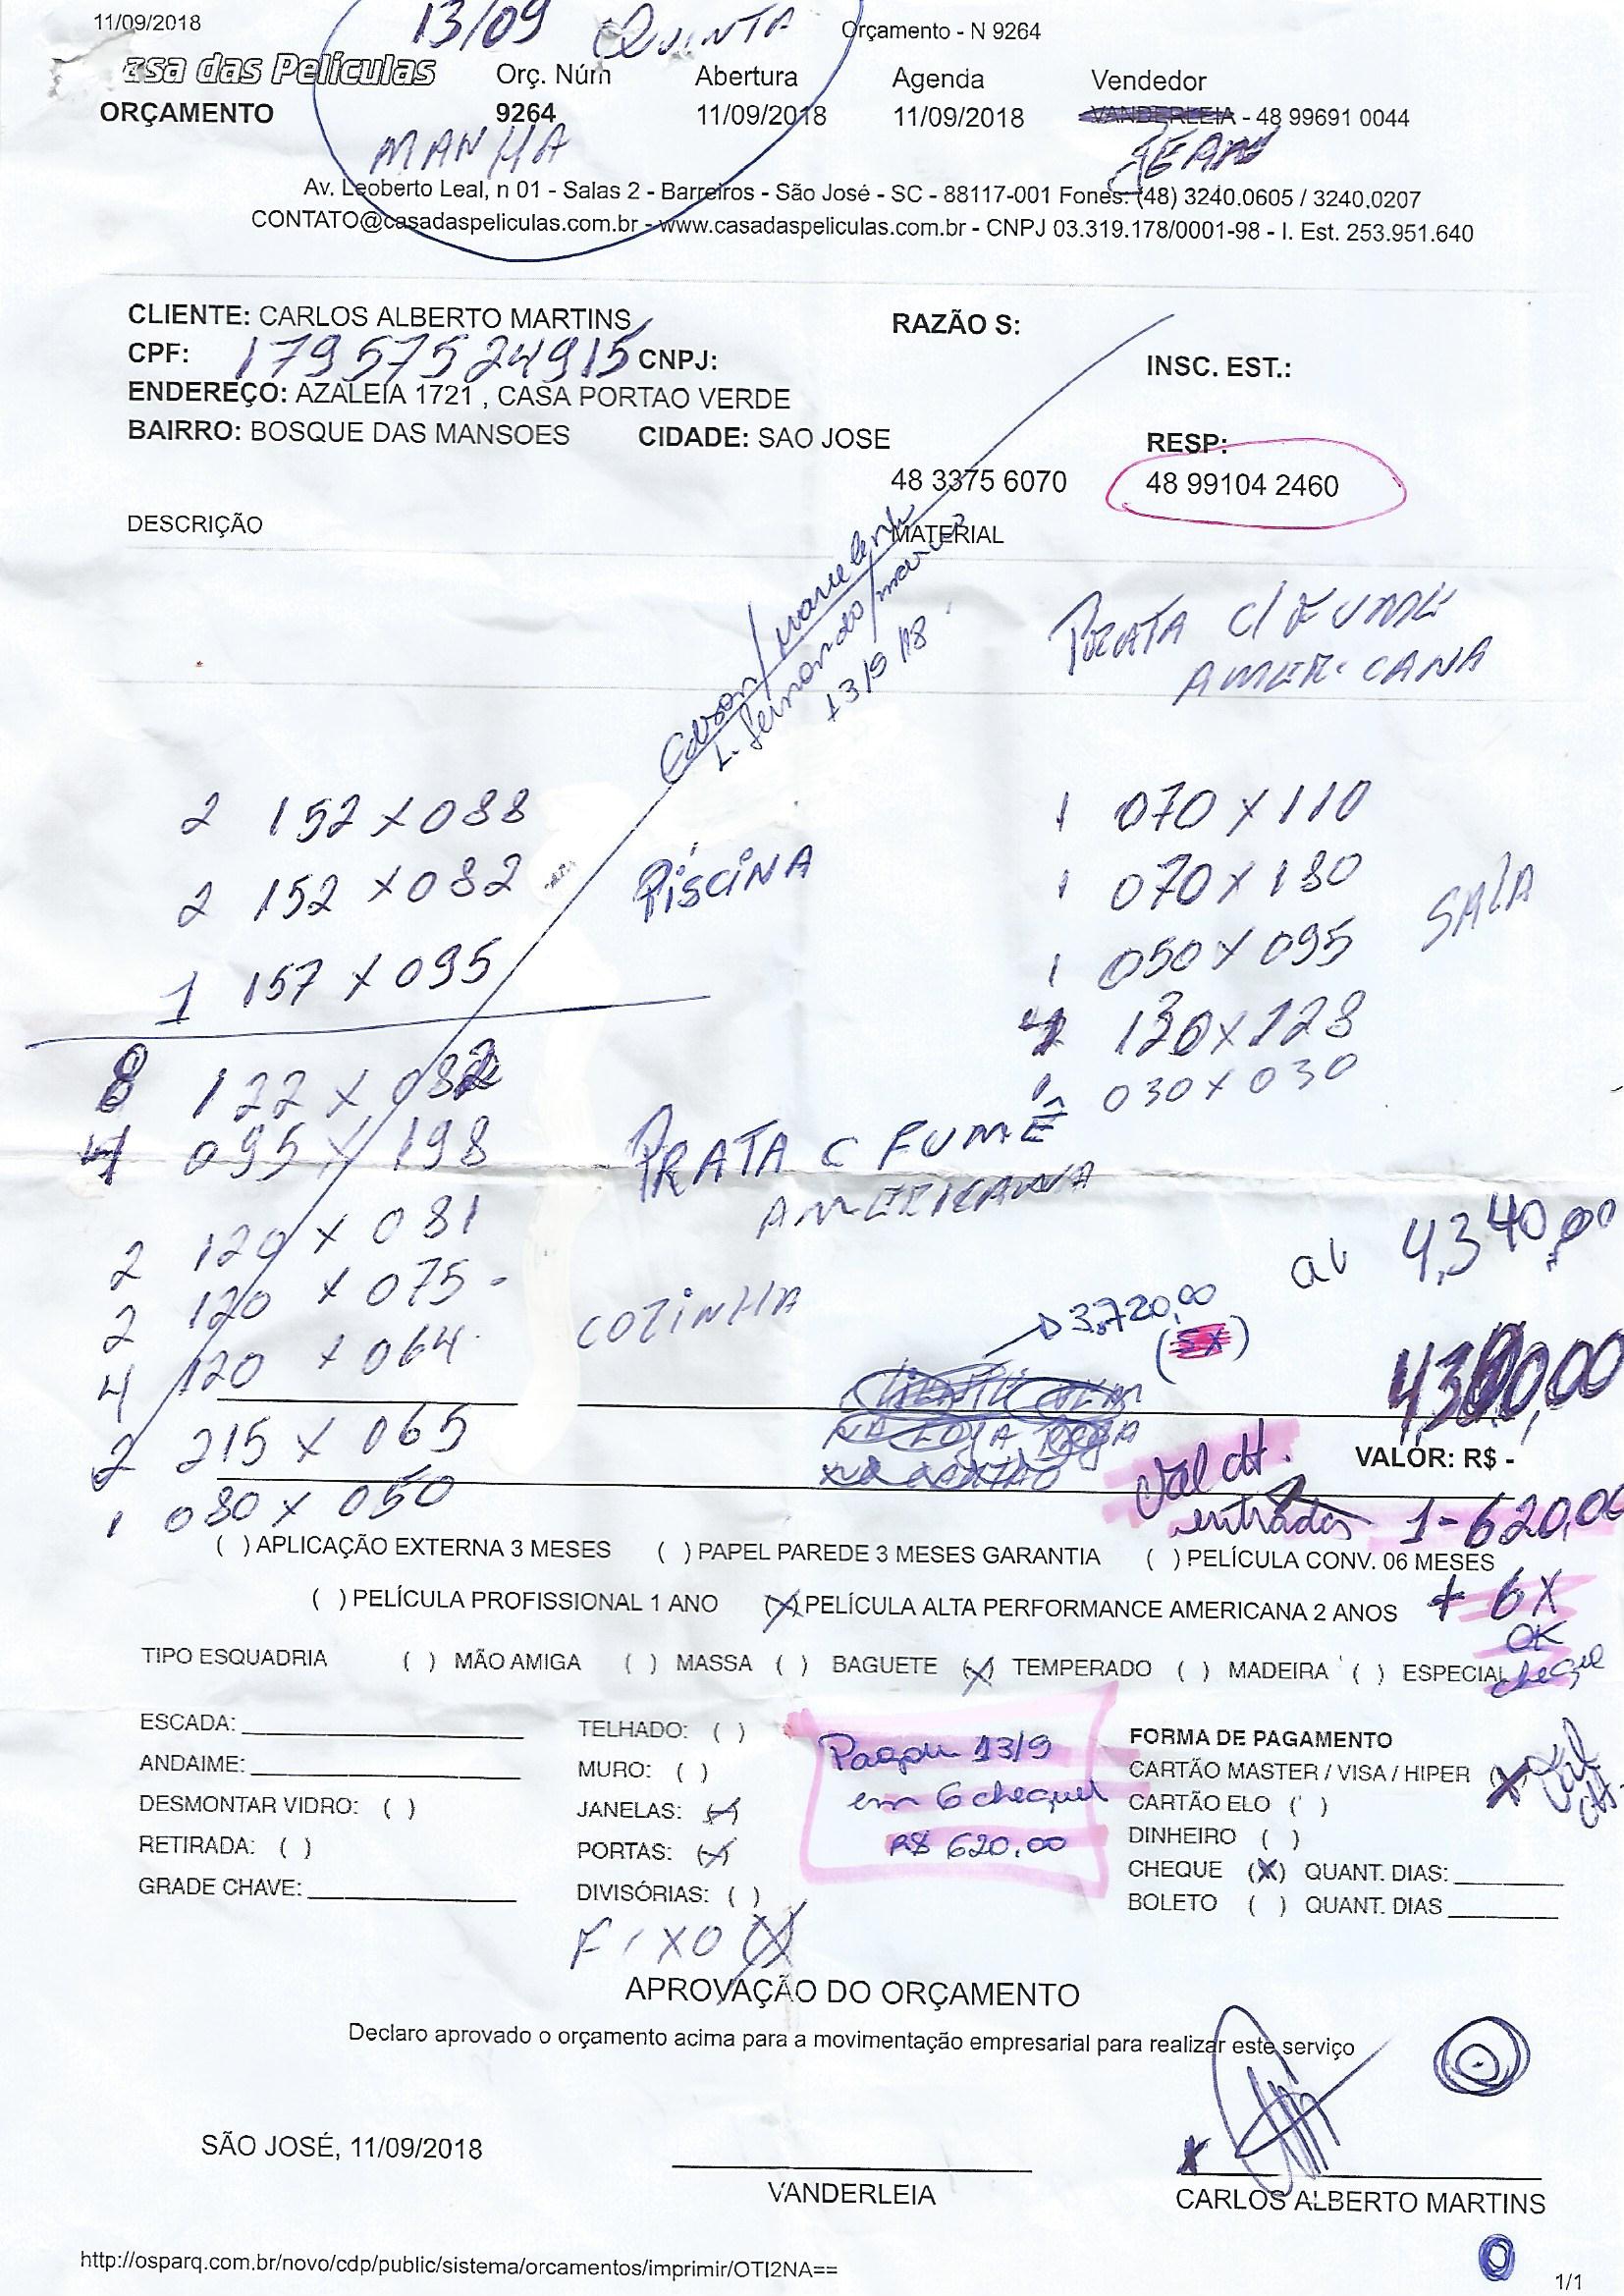 11/09/2018
13/09 QUINTA
Orçamento - N 9264
asa das Películas
Orç. Núm
Abertura
Agenda
Vendedor
ORÇAMENTO
9264
11/09/2018
11/09/2018
VANDERLEIA - 48 99691 0044
MANHA
JEAN
Av. Leoberto Leal, n 01 - Salas 2 - Barreiros - São José - SC - 88117-001 Fones: (48) 3240.0605 / 3240.0207
CONTATO@casadaspeliculas.com.br - www.casadaspeliculas.com.br - CNPJ 03.319.178/0001-98 - I. Est. 253.951.640
CLIENTE: CARLOS ALBERTO MARTINS
RAZÃO S:
CPF: 17957524915 CNPJ:
INSC. EST.:
ENDEREÇO: AZALEIA 1721 , CASA PORTAO VERDE
BAIRRO: BOSQUE DAS MANSOES
CIDADE: SAO JOSE
RESP:
48 3375 6070
48 99104 2460
DESCRIÇÃO
MATERIAL
L. fernando
13/9/18
PRATA C/ FUMÊ
AMERICANA
2 152 x 088
2 152 x 082
1 157 x 095
PISCINA
1 070 x 110
1 070 x 180
1 050 x 095
130 x 128
1 030 x 030
SALA
8 122 x 082
095 x 198
2 120 x 081
2 120 x 075
4 120 x 064
2 215 x 065
1 080 x 050
PRATA C FUMÊ
AMERICANA
COZINHA
4,340,00
3.720,00
(5x)
VALOR: R$ -
entradas 1 - 620,00
( ) APLICAÇÃO EXTERNA 3 MESES ( ) PAPEL PAREDE 3 MESES GARANTIA ( ) PELÍCULA CONV. 06 MESES
( ) PELÍCULA PROFISSIONAL 1 ANO (X) PELÍCULA ALTA PERFORMANCE AMERICANA 2 ANOS
+ 6X
OK
cheque
TIPO ESQUADRIA ( ) MÃO AMIGA ( ) MASSA ( ) BAGUETE (X) TEMPERADO ( ) MADEIRA ( ) ESPECIAL
ESCADA:
ANDAIME:
DESMONTAR VIDRO: ( )
RETIRADA: ( )
GRADE CHAVE:
TELHADO: ( )
MURO: ( )
JANELAS: (X)
PORTAS: (X)
DIVISÓRIAS: ( )
FIXO (X)
Pagou 13/9
em 6 cheques
R$ 620,00
FORMA DE PAGAMENTO
CARTÃO MASTER / VISA / HIPER (X)
CARTÃO ELO ( )
DINHEIRO ( )
CHEQUE (X) QUANT. DIAS:
BOLETO ( ) QUANT. DIAS
APROVAÇÃO DO ORÇAMENTO
Declaro aprovado o orçamento acima para a movimentação empresarial para realizar este serviço
SÃO JOSÉ, 11/09/2018
X
VANDERLEIA
CARLOS ALBERTO MARTINS
http://osparq.com.br/novo/cdp/public/sistema/orcamentos/imprimir/OTI2NA==
1/1